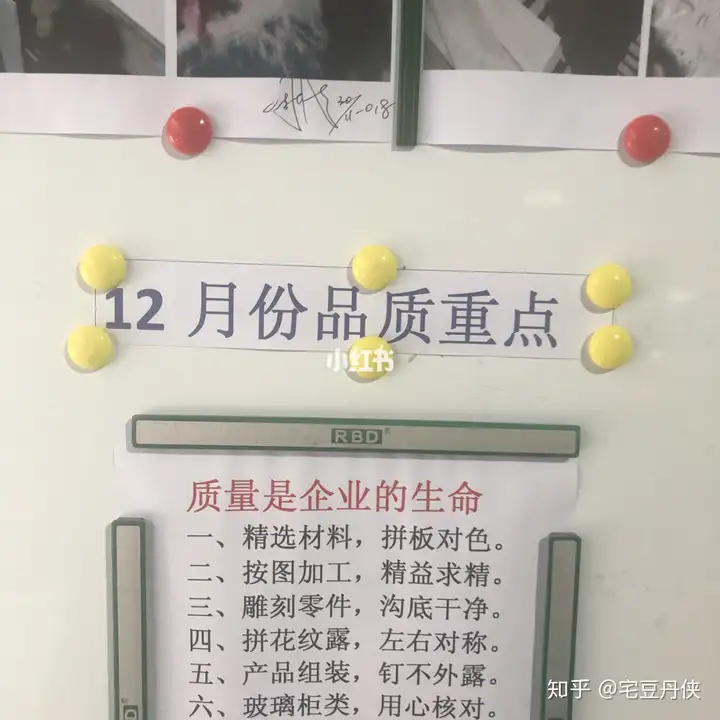 12 月份品质重点
小红书
RBD
质量是企业的生命
一、精选材料，拼板对色。
二、按图加工，精益求精。
三、雕刻零件，沟底干净。
四、拼花纹露，左右对称。
五、产品组装，钉不外露。
六、玻璃柜类，用心核对。
知乎 @宅豆丹侠